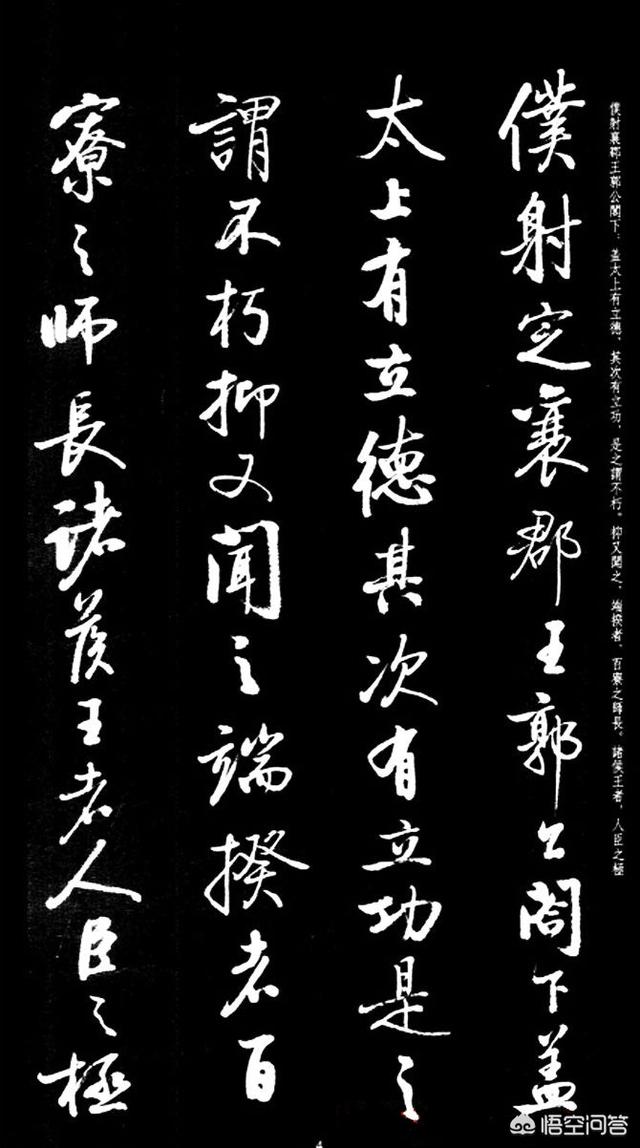 僕射襄郡王郭公閣下：盖太上有立德、其次有立功，是之謂不朽。抑又聞之，端揆者，百寮之師長。諸侯王者，人臣之極
僕射定襄郡王郭公閣下盖
太上有立德其次有立功是之
謂不朽抑又聞之端揆者百
寮之師長諸侯王者人臣之極
悟空问答